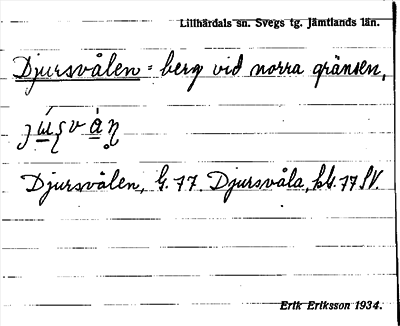 Lillhärdals sn. Svegs tg. Jämtlands län.
Djursvålen = berg vid norra gränsen,
Djursvålen, G. 77. Djursvåla, kbl. 77 SV.
Erik Eriksson 1934.